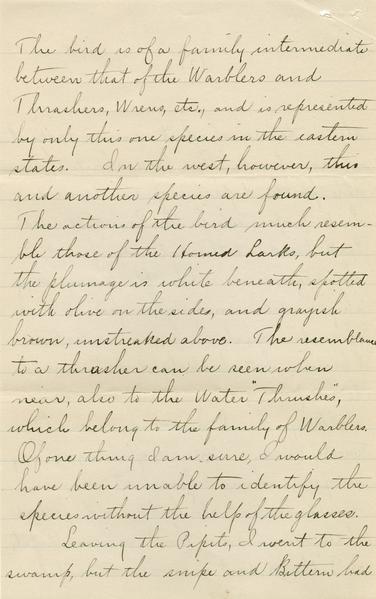 The bird is of a family intermediate
between that of the Warblers and
Thrashers, Wrens, etc., and is represented
by only this one species in the eastern
states. In the west, however, this
and another species are found.
The actions of the bird much resem-
ble those of the Horned Larks, but
the plumage is white beneath, spotted
with olive on the sides, and grayish
brown, unstreaked above. The resemblance
to a thrasher can be seen when
near, also to the Water "Thrushes",
which belong to the family of Warblers.
Of one thing I am sure, I would
have been unable to identify the
species without the help of the glasses.
Leaving the Pipit, I went to the
swamp, but the snipe and Bittern had